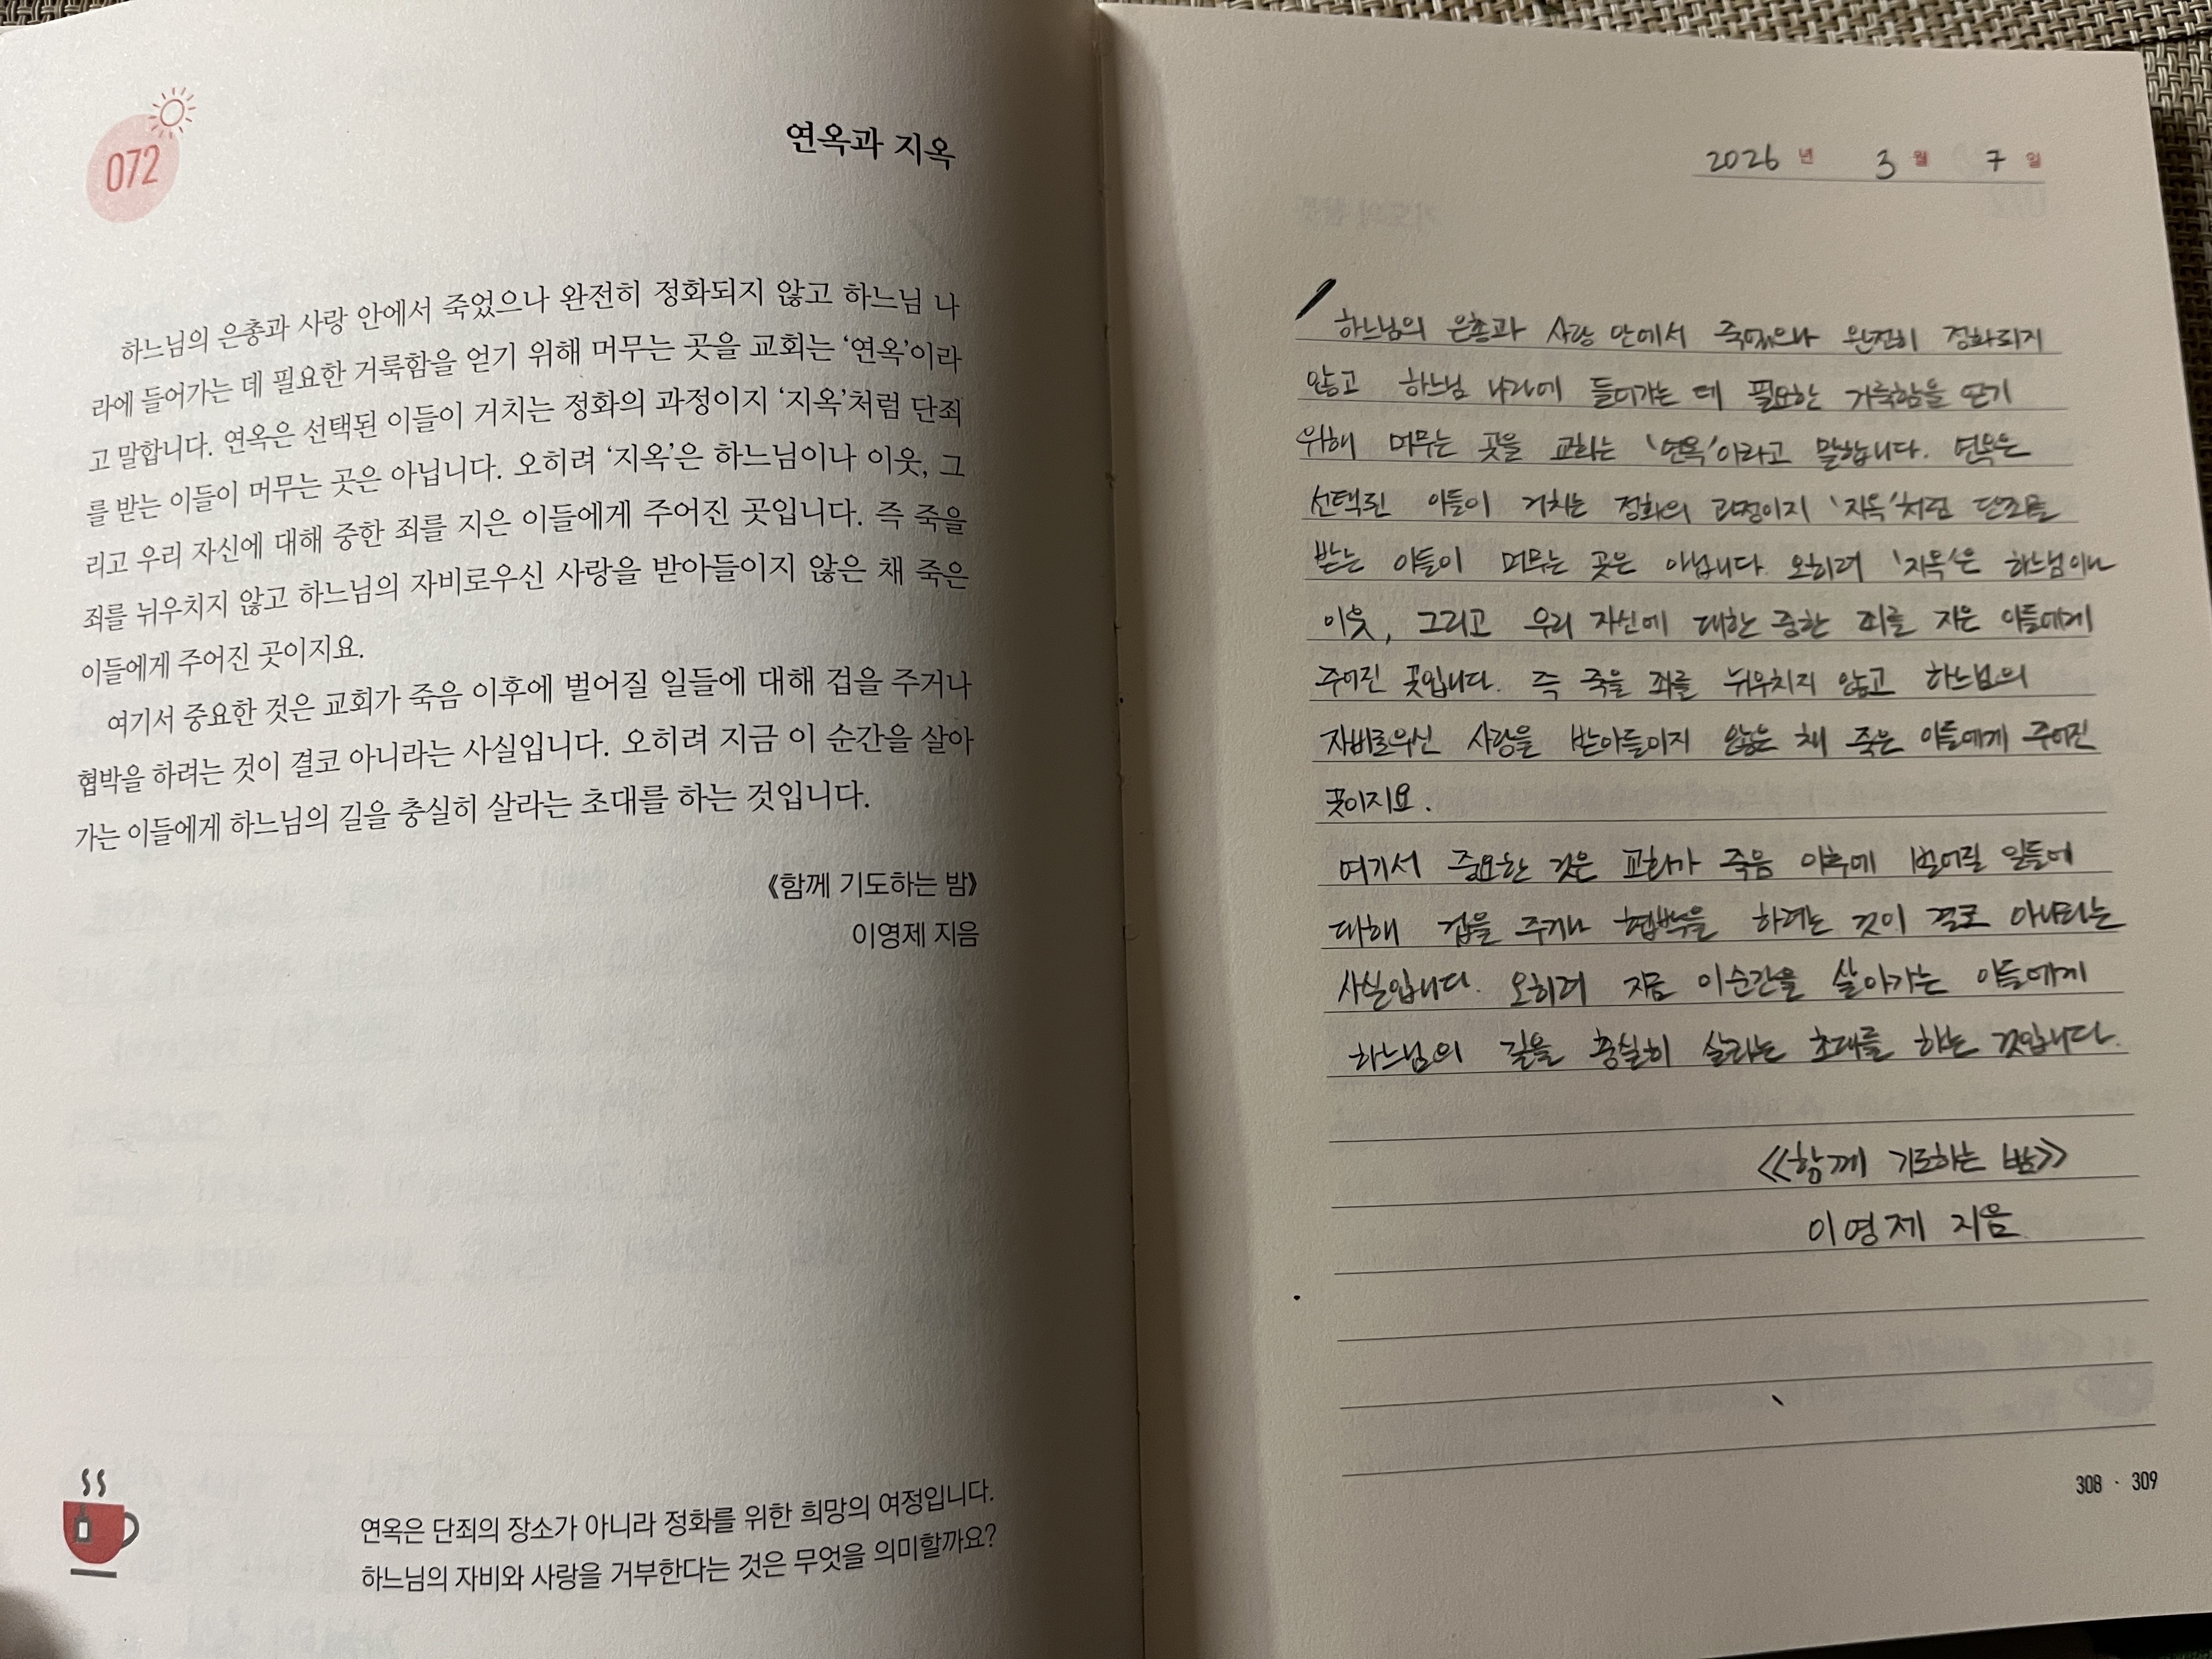 072
연옥과 지옥
하느님의 은총과 사랑 안에서 죽었으나 완전히 정화되지 않고 하느님 나
라에 들어가는 데 필요한 거룩함을 얻기 위해 머무는 곳을 교회는 ‘연옥’이라
고 말합니다. 연옥은 선택된 이들이 거치는 정화의 과정이지 ‘지옥’처럼 단죄
를 받는 이들이 머무는 곳은 아닙니다. 오히려 ‘지옥’은 하느님이나 이웃, 그
리고 우리 자신에 대해 중한 죄를 지은 이들에게 주어진 곳입니다. 즉 죽을
죄를 뉘우치지 않고 하느님의 자비로우신 사랑을 받아들이지 않은 채 죽은
이들에게 주어진 곳이지요.
여기서 중요한 것은 교회가 죽음 이후에 벌어질 일들에 대해 겁을 주거나
협박을 하려는 것이 결코 아니라는 사실입니다. 오히려 지금 이 순간을 살아
가는 이들에게 하느님의 길을 충실히 살라는 초대를 하는 것입니다.
《함께 기도하는 밤》
이영제 지음
연옥은 단죄의 장소가 아니라 정화를 위한 희망의 여정입니다.
하느님의 자비와 사랑을 거부한다는 것은 무엇을 의미할까요?
2026 년 3 월 7 일
하느님의 은총과 사랑 안에서 죽었으나 완전히 정화되지
않고 하느님 나라에 들어가는 데 필요한 거룩함을 얻기
위해 머무는 곳을 교회는 ‘연옥’이라고 말합니다. 연옥은
선택된 이들이 거치는 정화의 과정이지 ‘지옥’처럼 단죄를
받는 이들이 머무는 곳은 아닙니다. 오히려 ‘지옥’은 하느님이나
이웃, 그리고 우리 자신에 대한 중한 죄를 지은 이들에게
주어진 곳입니다. 즉 죽을 죄를 뉘우치지 않고 하느님의
자비로우신 사랑을 받아들이지 않은 채 죽은 이들에게 주어진
곳이지요.
여기서 중요한 것은 교회가 죽음 이후에 벌어질 일들에
대해 겁을 주거나 협박을 하려는 것이 결코 아니라는
사실입니다. 오히려 지금 이순간을 살아가는 이들에게
하느님의 길을 충실히 살라는 초대를 하는 것입니다.
《함께 기도하는 밤》
이영제 지음
308 · 309